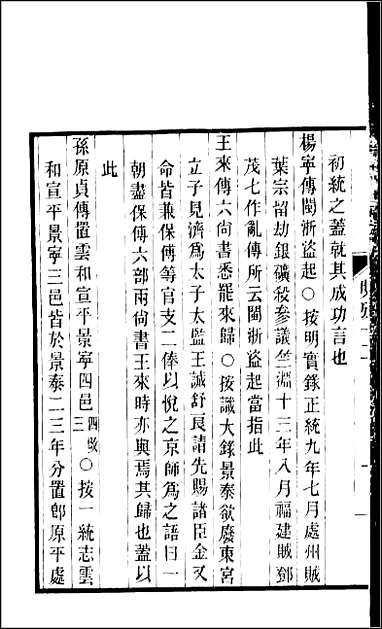 初統之蓋就其成功言也
楊寧傳閩浙盜起○按明實錄正統九年七月處州賊
葉宗留劫銀礦殺參議竺淵十三年八月福建賊鄧
茂七作亂傳所云閩浙盜起當指此
王來傳六尚書悉罷來歸○按識大錄景泰欲廢東宮
立子見濟爲太子太監王誠舒良請先賜諸臣金又
命皆兼保傅等官支二俸以悅之京師爲之語曰一
朝盡保傅六部兩尚書王來時亦與焉其歸也蓋以
此
孫原貞傳置雲和宣平景寧四邑四改三○按一統志雲
和宣平景寧三邑皆於景泰二三年分置卽原平處